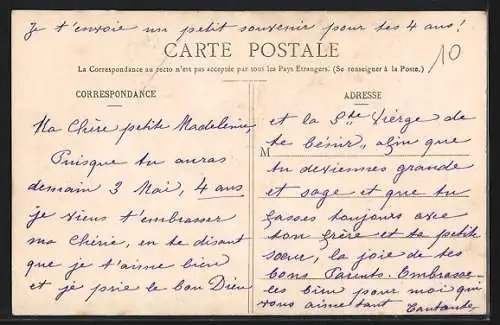 Je t'envoie un petit souvenir pour tes 4 ans !
CARTE POSTALE
10
La Correspondance au recto n'est pas acceptée par tous les Pays Etrangers. (Se renseigner à la Poste.)
CORRESPONDANCE
Ma Chère petite Madeleine,
Puisque tu auras
demain 3 Mai, 4 ans
je viens t'embrasser
ma Chérie, en te disant
que je t'aime bien
et je prie le bon Dieu
ADRESSE
et la Ste Vierge de
te bénir, afin que
M
tu deviennes grande
et sage et que tu
fasses toujours avec
ton frère et ta petite
sœur, la joie de tes
bons Parents. Embrasse-
les bien pour moi qui
vous aime tant Tantante